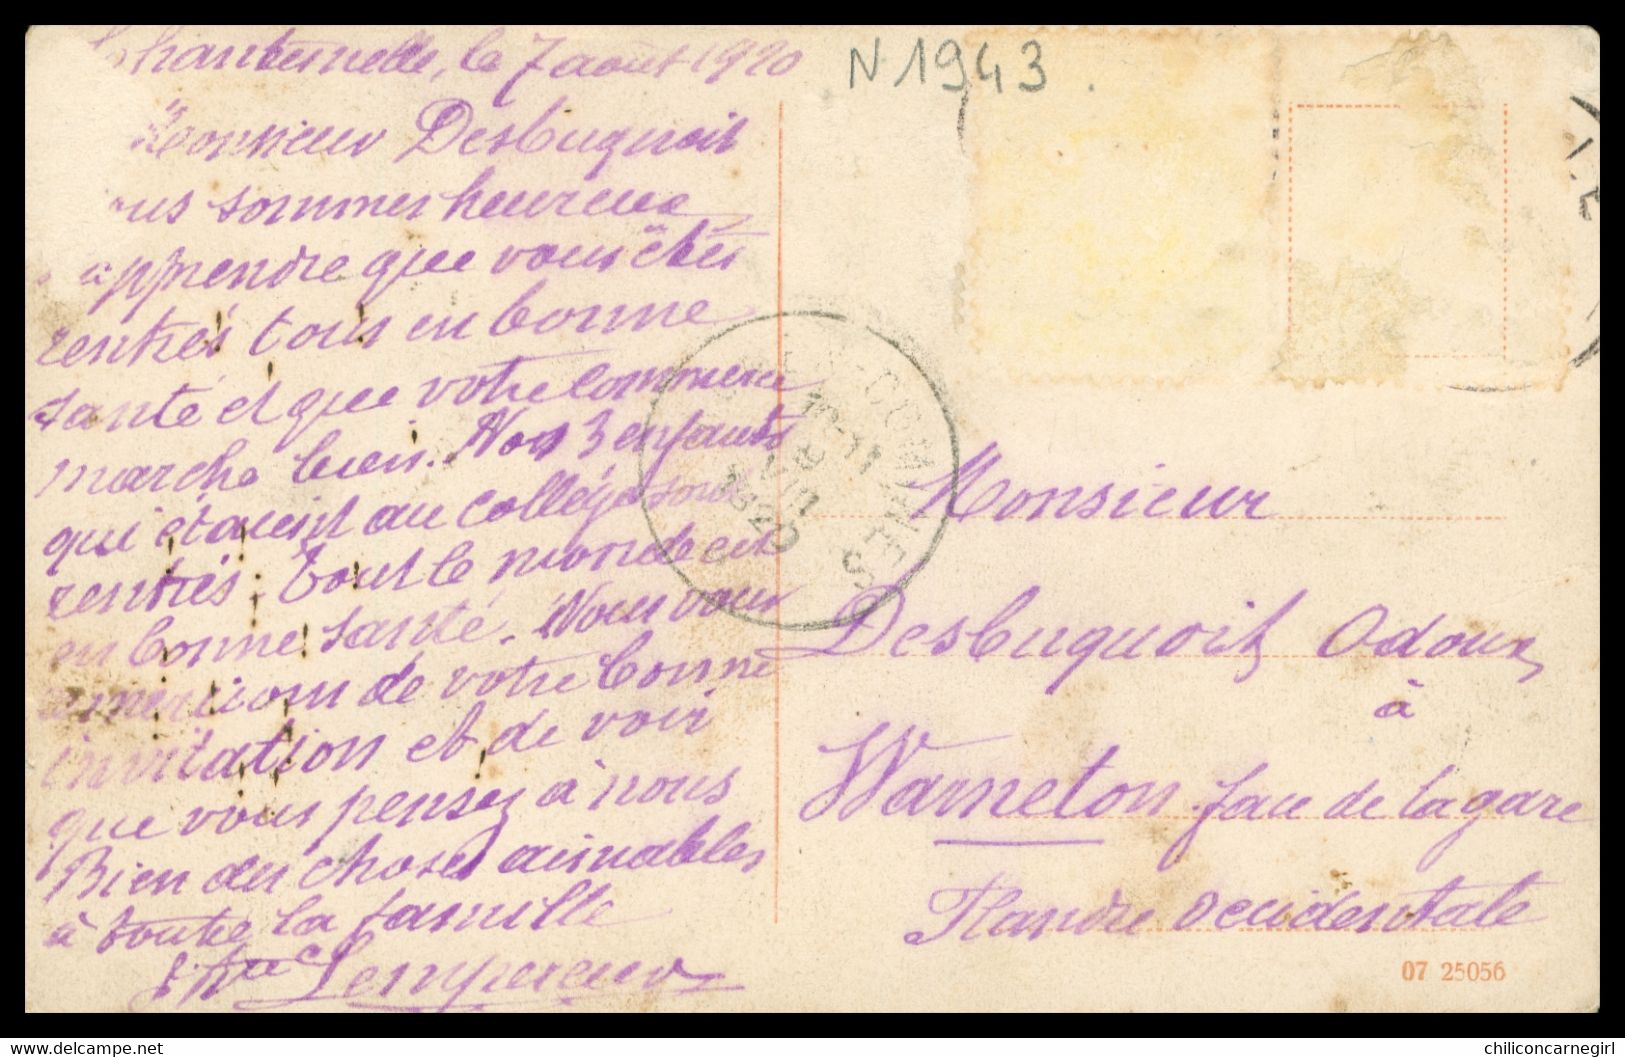 Chantemelle, le 7 août 1920
N 1943.
Monsieur Desbuquoit
sommes heureux
apprendre que vous êtes
rentrés tous en bonne
santé et que votre commerce
marche bien. Nos 3 enfants
qui étaient au collège sont
rentrés. Tout le monde est
en bonne santé. Nous vous
remercions de votre bonne
invitation et de voir
que vous pensez à nous
Bien des choses aimables
à toute la famille
Lempereur
COMINES
10-11
VIII
1920
Monsieur
Desbuquoit Odoux
à
Warneton face de la gare
Flandre Occidentale
07 25056
Delcampe.net
chiliconcarnegirl